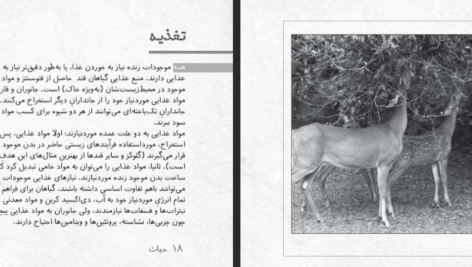 تغذیه
همهٔ موجودات زنده نیاز به خوردن غذا، یا به‌طور دقیق‌تر نیاز به
غذایی دارند. منبع غذایی گیاهان قند حاصل از فتوسنتز و مواد
موجود در محیط‌زیست‌شان (به‌ویژه خاک) است. جانوران و قار
مواد غذایی موردنیاز خود را از جانداران دیگر استخراج می‌کنند.
جانداران تک‌یاخته‌ای می‌توانند از هر دو شیوه برای کسب مواد
سود ببرند.
مواد غذایی به دو علت عمده موردنیازند: اولاً مواد غذایی، پس
استخراج، مورداستفاده فرآیندهای زیستی حاضر در بدن موجود
قرار می‌گیرند (گلوکز و سایر قندها از بهترین مثال‌های این هدف
است)، ثانیاً، مواد غذایی را می‌توان به مواد خامی تبدیل کرد ک
ساخت بدن موجود زنده موردنیازند. نیازهای غذایی موجودات
می‌توانند باهم تفاوت اساسی داشته باشند. گیاهان برای فراهم
تمام انرژی موردنیاز خود به آب، دی‌اکسید کربن و مواد معدنی
نیترات‌ها و فسفات‌ها نیازمندند، ولی جانوران به مواد غذایی پیچ
چون چربی‌ها، نشاسته، پروتئین‌ها و ویتامین‌ها احتیاج دارند.
۱۸ حیات